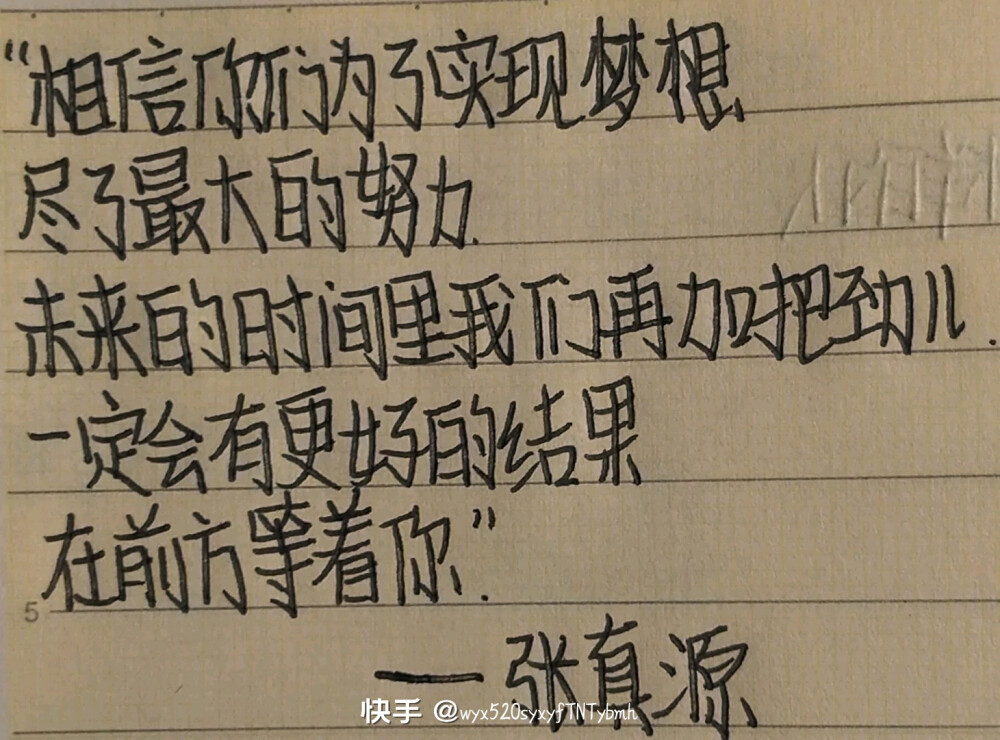 “相信你们为了实现梦想
尽了最大的努力.
未来的时间里我们再加把劲儿.
一定会有更好的结果
在前方等着你.”
5
— 张真源
快手 @wyx520syxyfTNTybmh